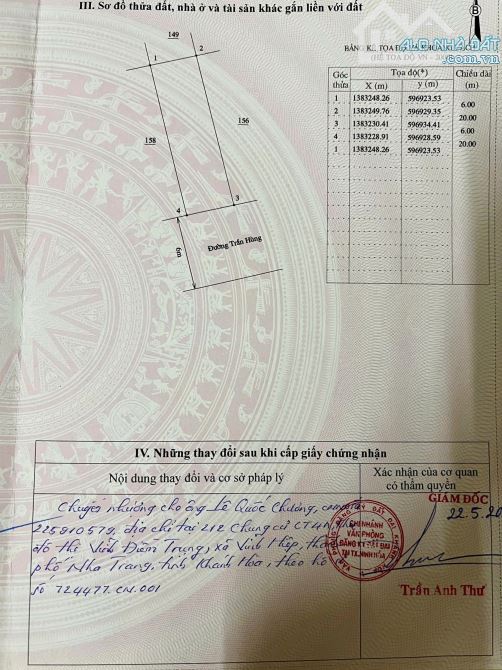 III. Sơ đồ thửa đất, nhà ở và tài sản khác gắn liền với đất
B
ALO NHÀ ĐẤT
149
1
2
158
156
4
3
6m
Đường Trần Hùng
BẢNG KÊ TỌA ĐỘ VÀ KHOẢNG CÁCH
(HỆ TỌA ĐỘ VN - 2000)
Góc thửa
Tọa độ(*)
Chiều dài
X (m)
y (m)
(m)
1 1383248.26 596923.53
6.00
2 1383249.76 596929.35
20.00
3 1383230.41 596934.41
6.00
4 1383228.91 596928.59
20.00
1 1383248.26 596923.53
IV. Những thay đổi sau khi cấp giấy chứng nhận
Nội dung thay đổi và cơ sở pháp lý
Xác nhận của cơ quan có thẩm quyền
Chuyển nhượng cho ông Lê Quốc Chương,
225810579, địa chỉ tại 212 Chung cư CT4A, khu
đô thị Vĩnh Điềm Trung, xã Vĩnh Hiệp, thành
phố Nha Trang, tỉnh Khánh Hòa, theo hồ
số 724477.CN.001
GIÁM ĐỐC
22.5.20
CHI NHÁNH
VĂN PHÒNG
ĐĂNG KÝ ĐẤT ĐAI
TẠI TX.NINH HÒA
Trần Anh Thư